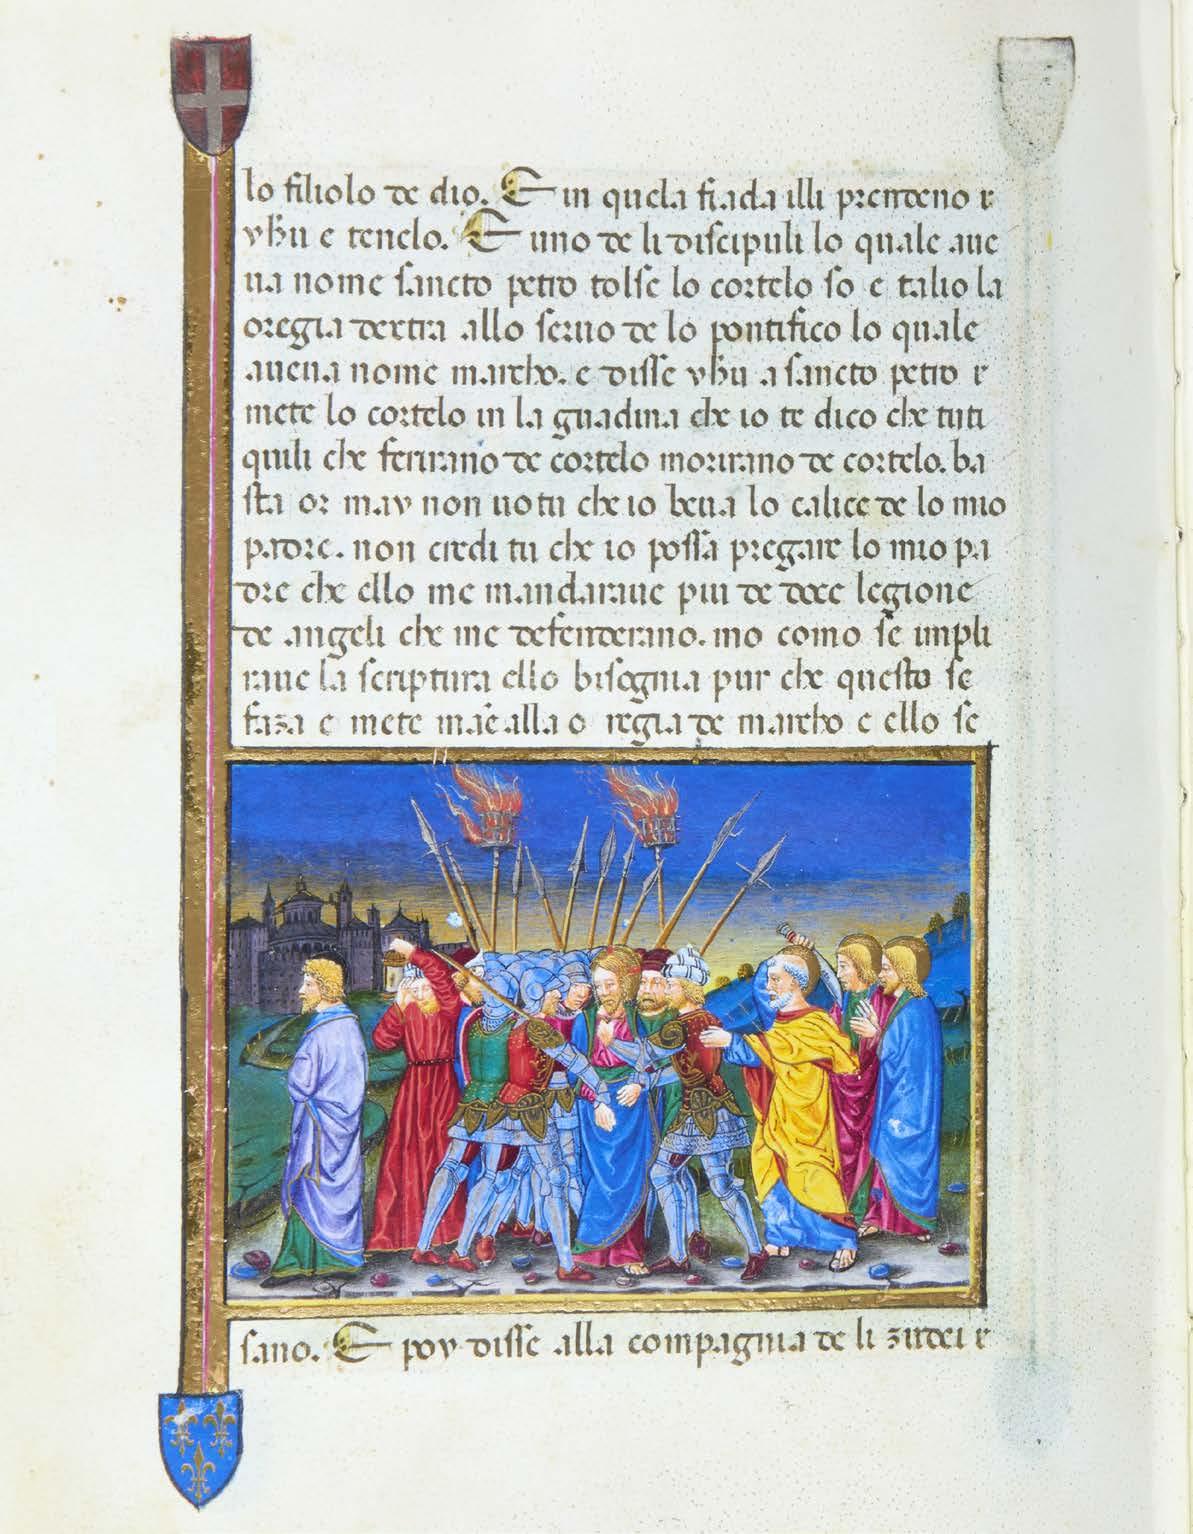 lo filiolo de dio. E in quela fiada illi prendeno r
yhũ e tenelo. E uno de li discipuli lo quale aue
ua nome sancto petro tolse lo cortelo so e talio la
oregia dextra allo seruo de lo pontifico lo quale
aueua nome marcho. e disse yhũ a sancto petro r
mete lo cortelo in la guadina che io te dico che tuti
quili che ferirano de cortelo morirano de cortelo. ba
sta or may non uo tu che io beua lo calice de lo mio
padre. non credi tu che io possa pregare lo mio pa
dre che ello me mandaraue piu de dece legione
de angeli che me defenderano. mo como se impli
raue la scriptura ello bisognia pur che questo se
faza e mete mãe alla o regia de marcho e ello se
sano. E poy disse alla compagnia de li zudei r